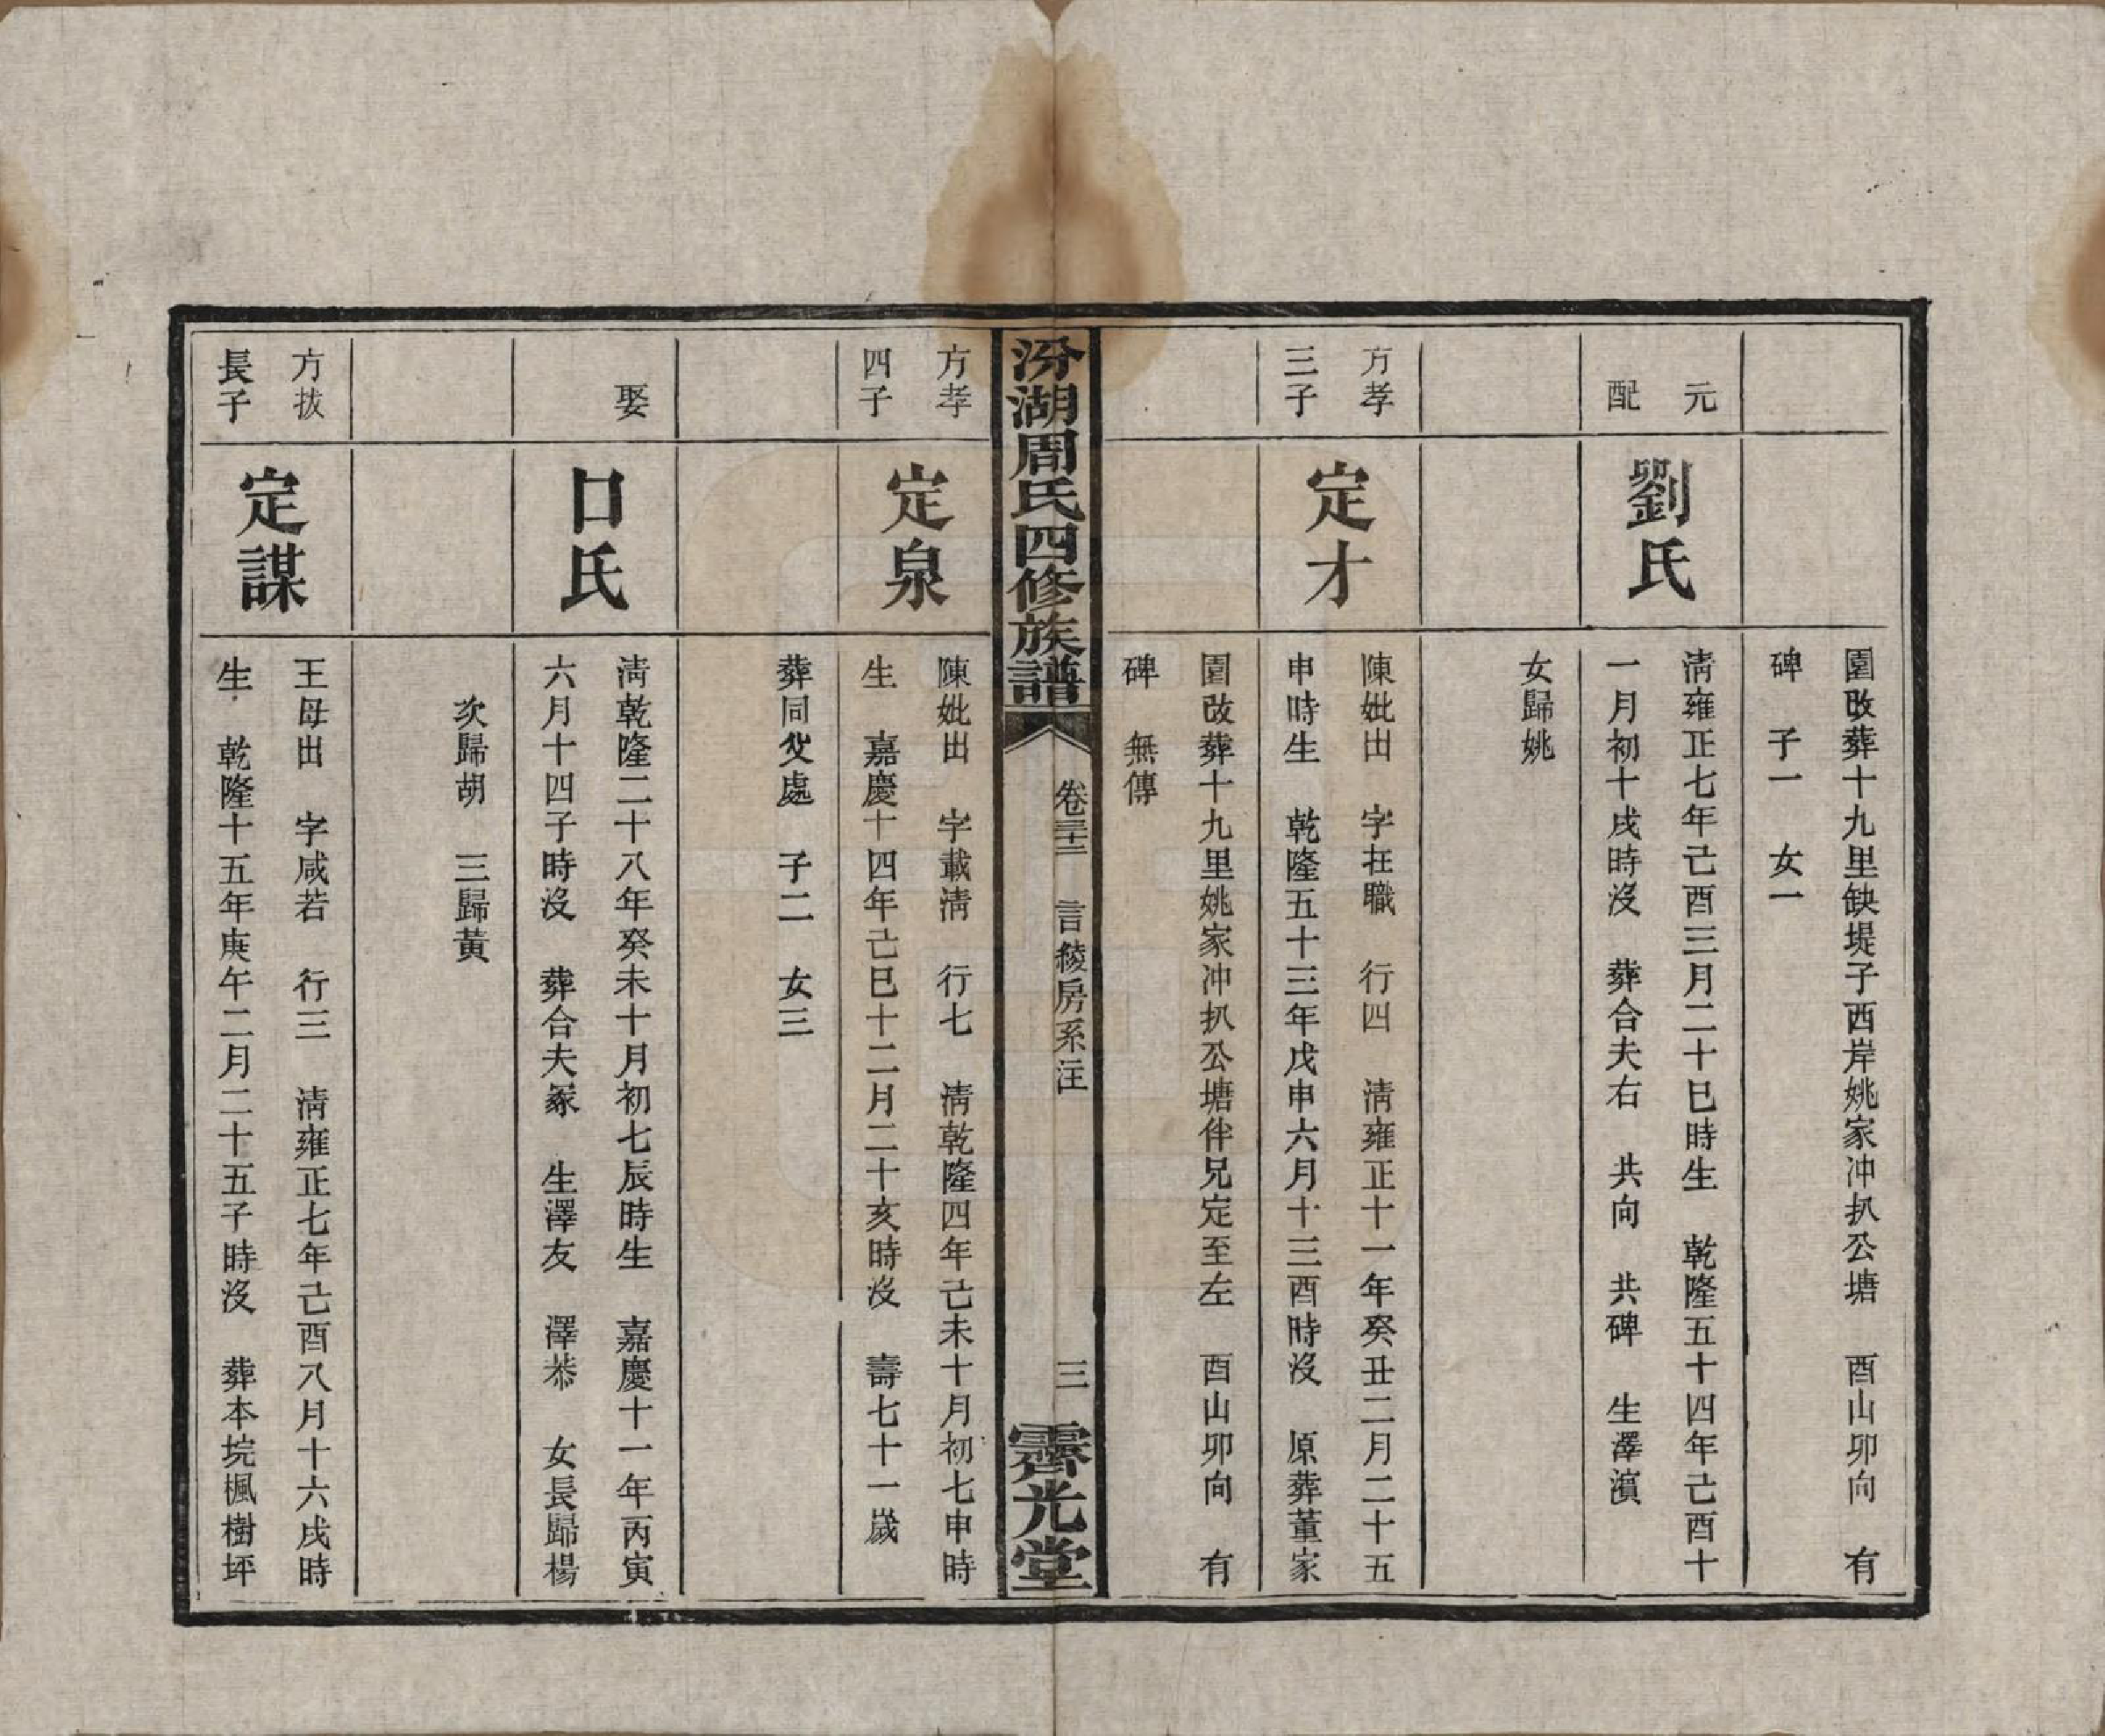 園改葬十九里缺堤子西岸姚家冲扒公塘　酉山卯向　有
碑　子一　女一
元
配
劉氏
淸雍正七年己酉三月二十巳時生　乾隆五十四年己酉十
一月初十戌時沒　葬合夫右　共向　共碑　生澤濱
女歸姚
方孝
三子
定才
陳妣出　字在職　行四　淸雍正十一年癸丑二月二十五
申時生　乾隆五十三年戊申六月十三酉時沒　原葬董家
園改葬十九里姚家冲扒公塘伴兄定至左　酉山卯向　有
碑　無傳
汾湖周氏四修族譜
卷三十三　言綾房系注
三
霽光堂
方孝
四子
定泉
陳妣出　字載淸　行七　淸乾隆四年己未十月初七申時
生　嘉慶十四年己巳十二月二十亥時沒　壽七十一嵗
葬同父處　子二　女三
娶
口氏
淸乾隆二十八年癸未十月初七辰時生　嘉慶十一年丙寅
六月十四子時沒　葬合夫冢　生澤友　澤恭　女長歸楊
次歸胡　三歸黃
方拔
長子
定謀
王母出　字咸若　行三　淸雍正七年己酉八月十六戌時
生　乾隆十五年庚午二月二十五子時沒　葬本垸楓樹坪